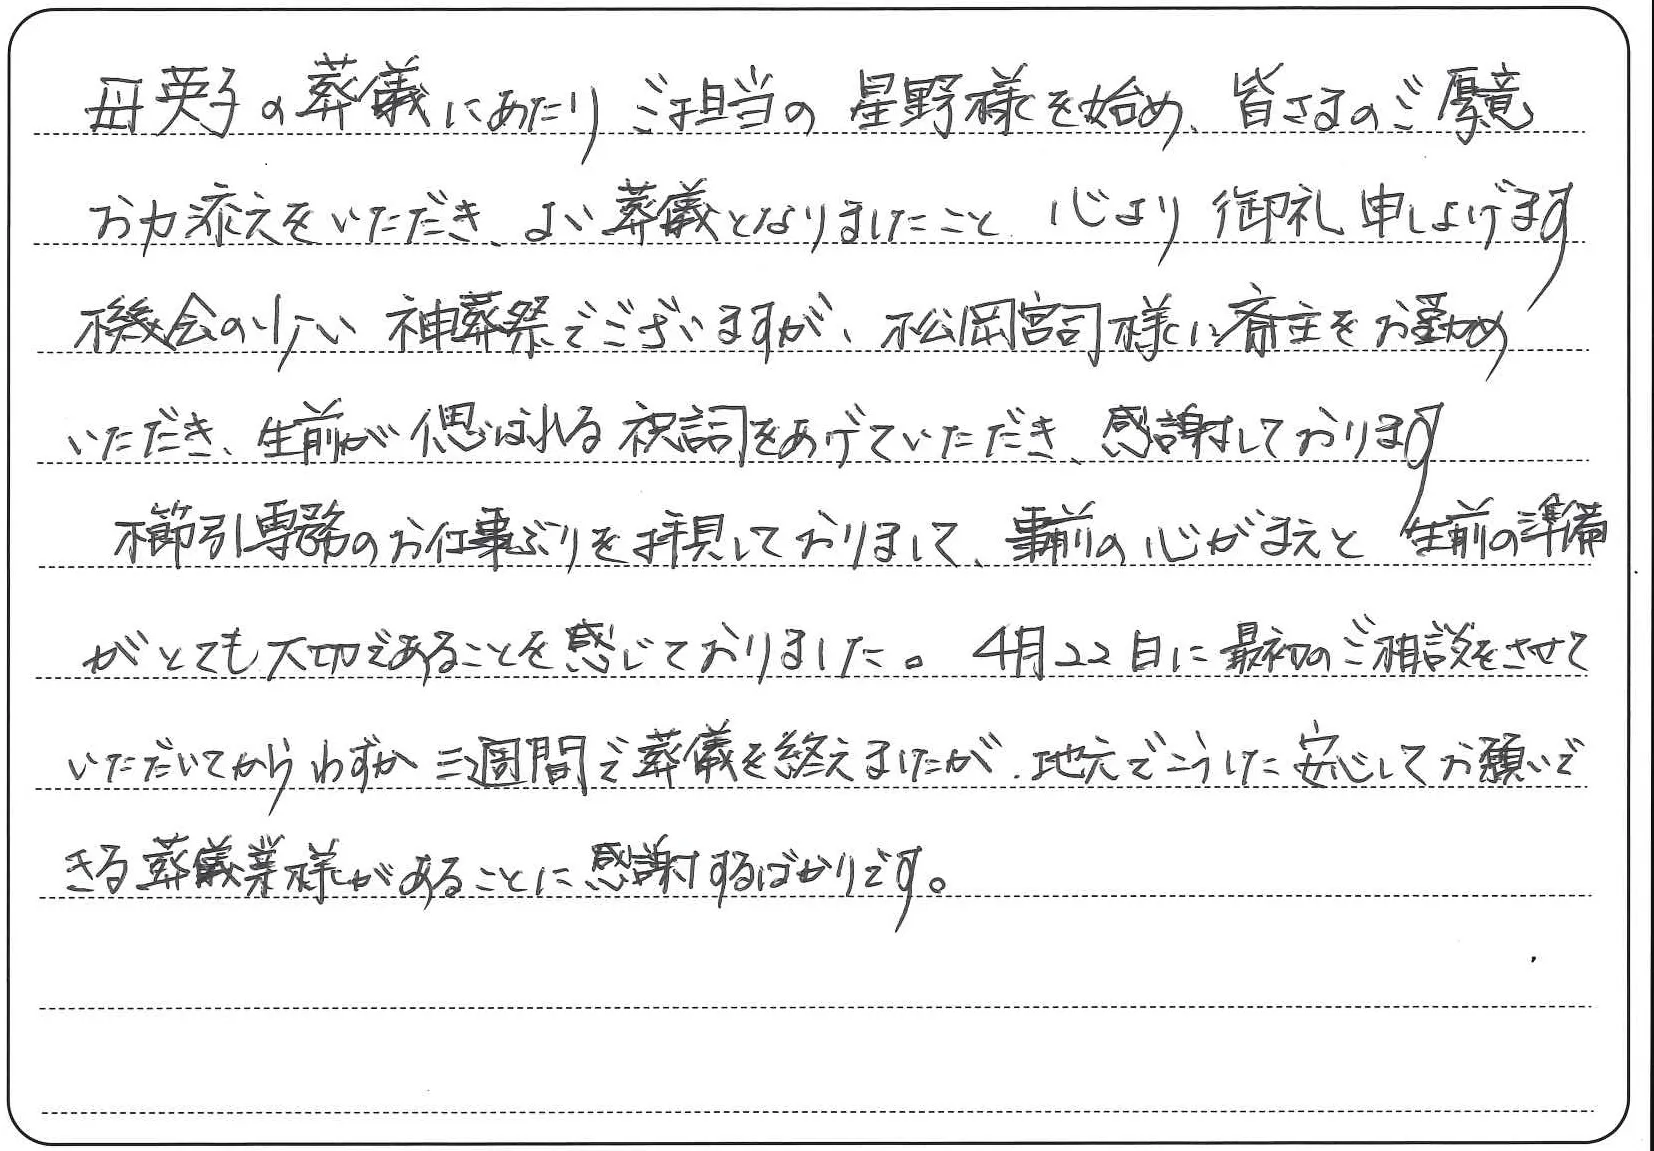 母英子の葬儀にあたりご担当の星野様を始め、皆さまのご厚意
お力添えをいただき、よい葬儀となりましたこと 心より御礼申し上げます
機会の少い神葬祭でございますが、松岡宮司様に斎主をお勤め
いただき、生前が偲ばれる祝詞をあげていただき、感謝しております
櫛引専務のお仕事ぶりを拝見しておりまして、事前の心がまえと生前の準備
がとても大切であることを感じておりました。4月22日に最初のご相談をさせて
いただいてからわずか三週間で葬儀を終えましたが、地元でこうした安心してお願いで
きる葬儀業様があることに感謝するばかりです。